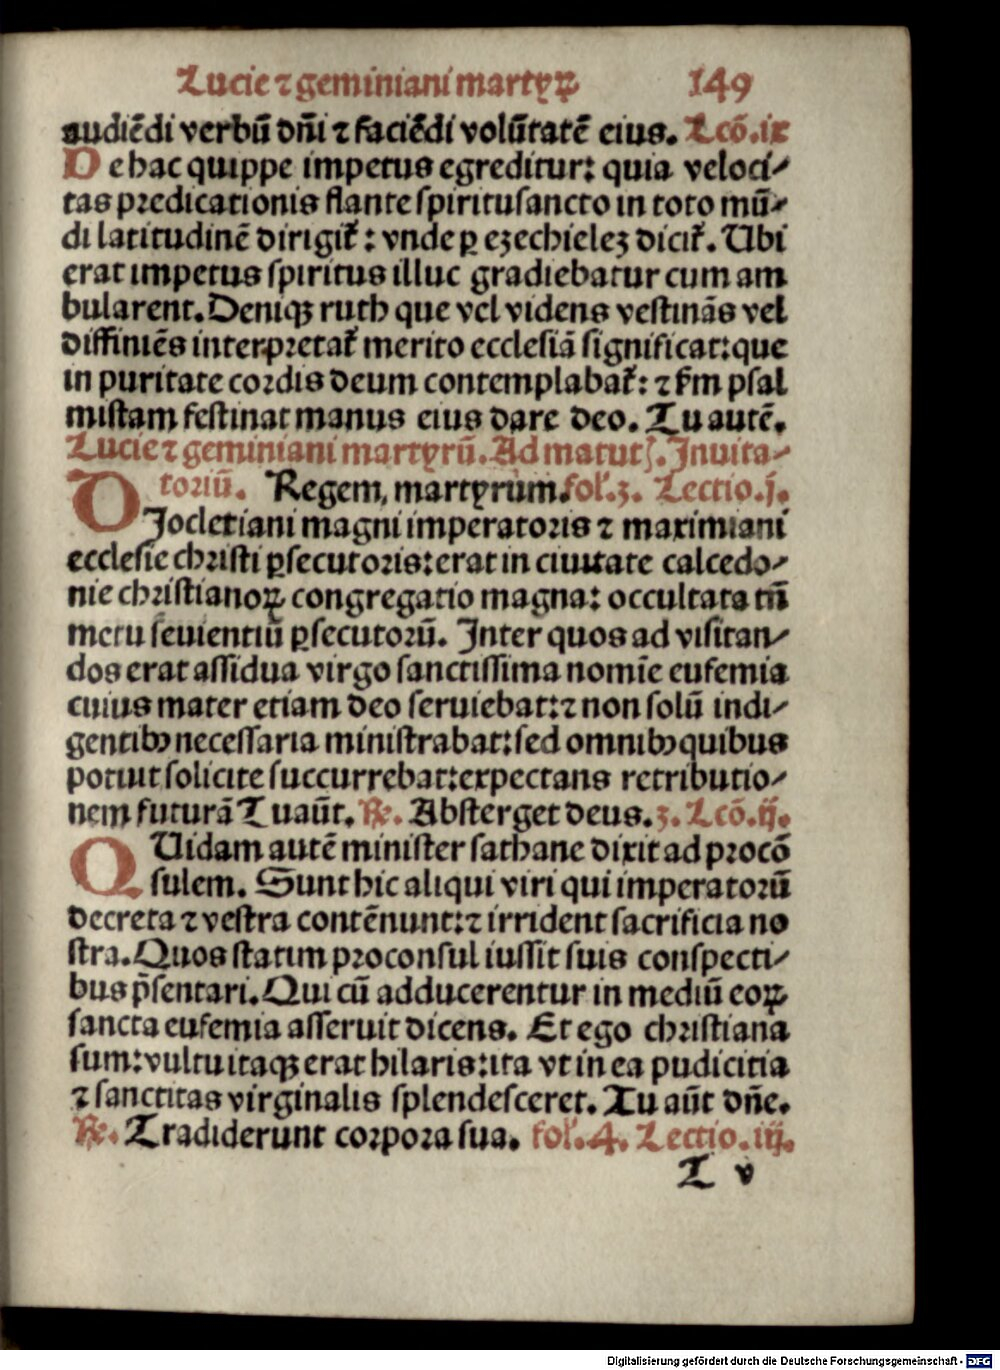 Lucie ⁊ geminiani martyꝝ 149
audiẽdi verbũ dñi ⁊ faciẽdi volũtatẽ eius. Lcõ.ix
De hac quippe impetus egreditur: quia veloci⸗
tas predicationis flante spiritusancto in toto mũ⸗
di latitudinẽ dirigit᷑: vnde ꝑ ezechielez dicit᷑. Ubi
erat impetus spiritus illuc gradiebatur cum am
bularent. Deniqꝫ ruth que vel videns vel festinãs vel
diffiniẽs interpretat᷑ merito ecclesiã significat: que
in puritate cordis deum contemplabat᷑: ⁊ ẜm psal
mistam festinat manus eius dare deo. Tu autẽ.
Lucie ⁊ geminiani martyrũ. Ad matut. Inuita⸗
toriũ. Regem, martyrum. fol.3. Lectio.j.
DIocletiani magni imperatoris ⁊ maximiani
ecclesie christi ꝑsecutoris: erat in ciuitate calcedo⸗
nie christianoꝝ congregatio magna: occultata tñ
metu seuientiũ ꝑsecutorũ. Inter quos ad visitan⸗
dos erat assidua virgo sanctissima nomĩe eufemia
cuius mater etiam deo seruiebat: ⁊ non solũ indi⸗
gentibꝰ necessaria ministrabat: sed omnibꝰ quibus
potuit solicite succurrebat: expectans retributio⸗
nem futurã Tu aũt. ℟. Absterget deus. 3. Lcõ.ij.
QUidam autẽ minister sathane dixit ad procõ
sulem. Sunt hic aliqui viri qui imperatorũ
decreta ⁊ vestra contẽnunt: ⁊ irrident sacrificia no
stra. Quos statim proconsul iussit suis conspecti⸗
bus p̃sentari. Qui cũ adducerentur in mediũ eoꝝ
sancta eufemia asseruit dicens. Et ego christiana
sum: vultu itaqꝫ erat hilaris: ita vt in ea pudicitia
⁊ sanctitas virginalis splendesceret. Tu aũt dñe.
℟. Tradiderunt corpora sua. fol.4. Lectio.iij.
T v
Digitalisierung gefördert durch die Deutsche Forschungsgemeinschaft - DFG